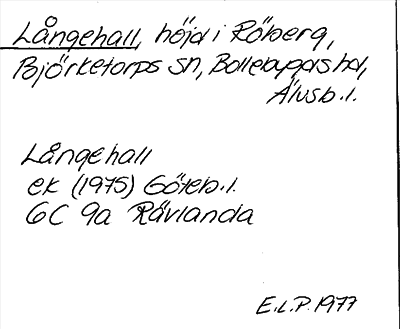 Långehall, höjd i Röberg,
Björketorps sn, Bollebygds hd,
Älvsb. l.
Långehall
ek (1975) Göteb. l.
6C 9a Rävlanda
E.L.P. 1977